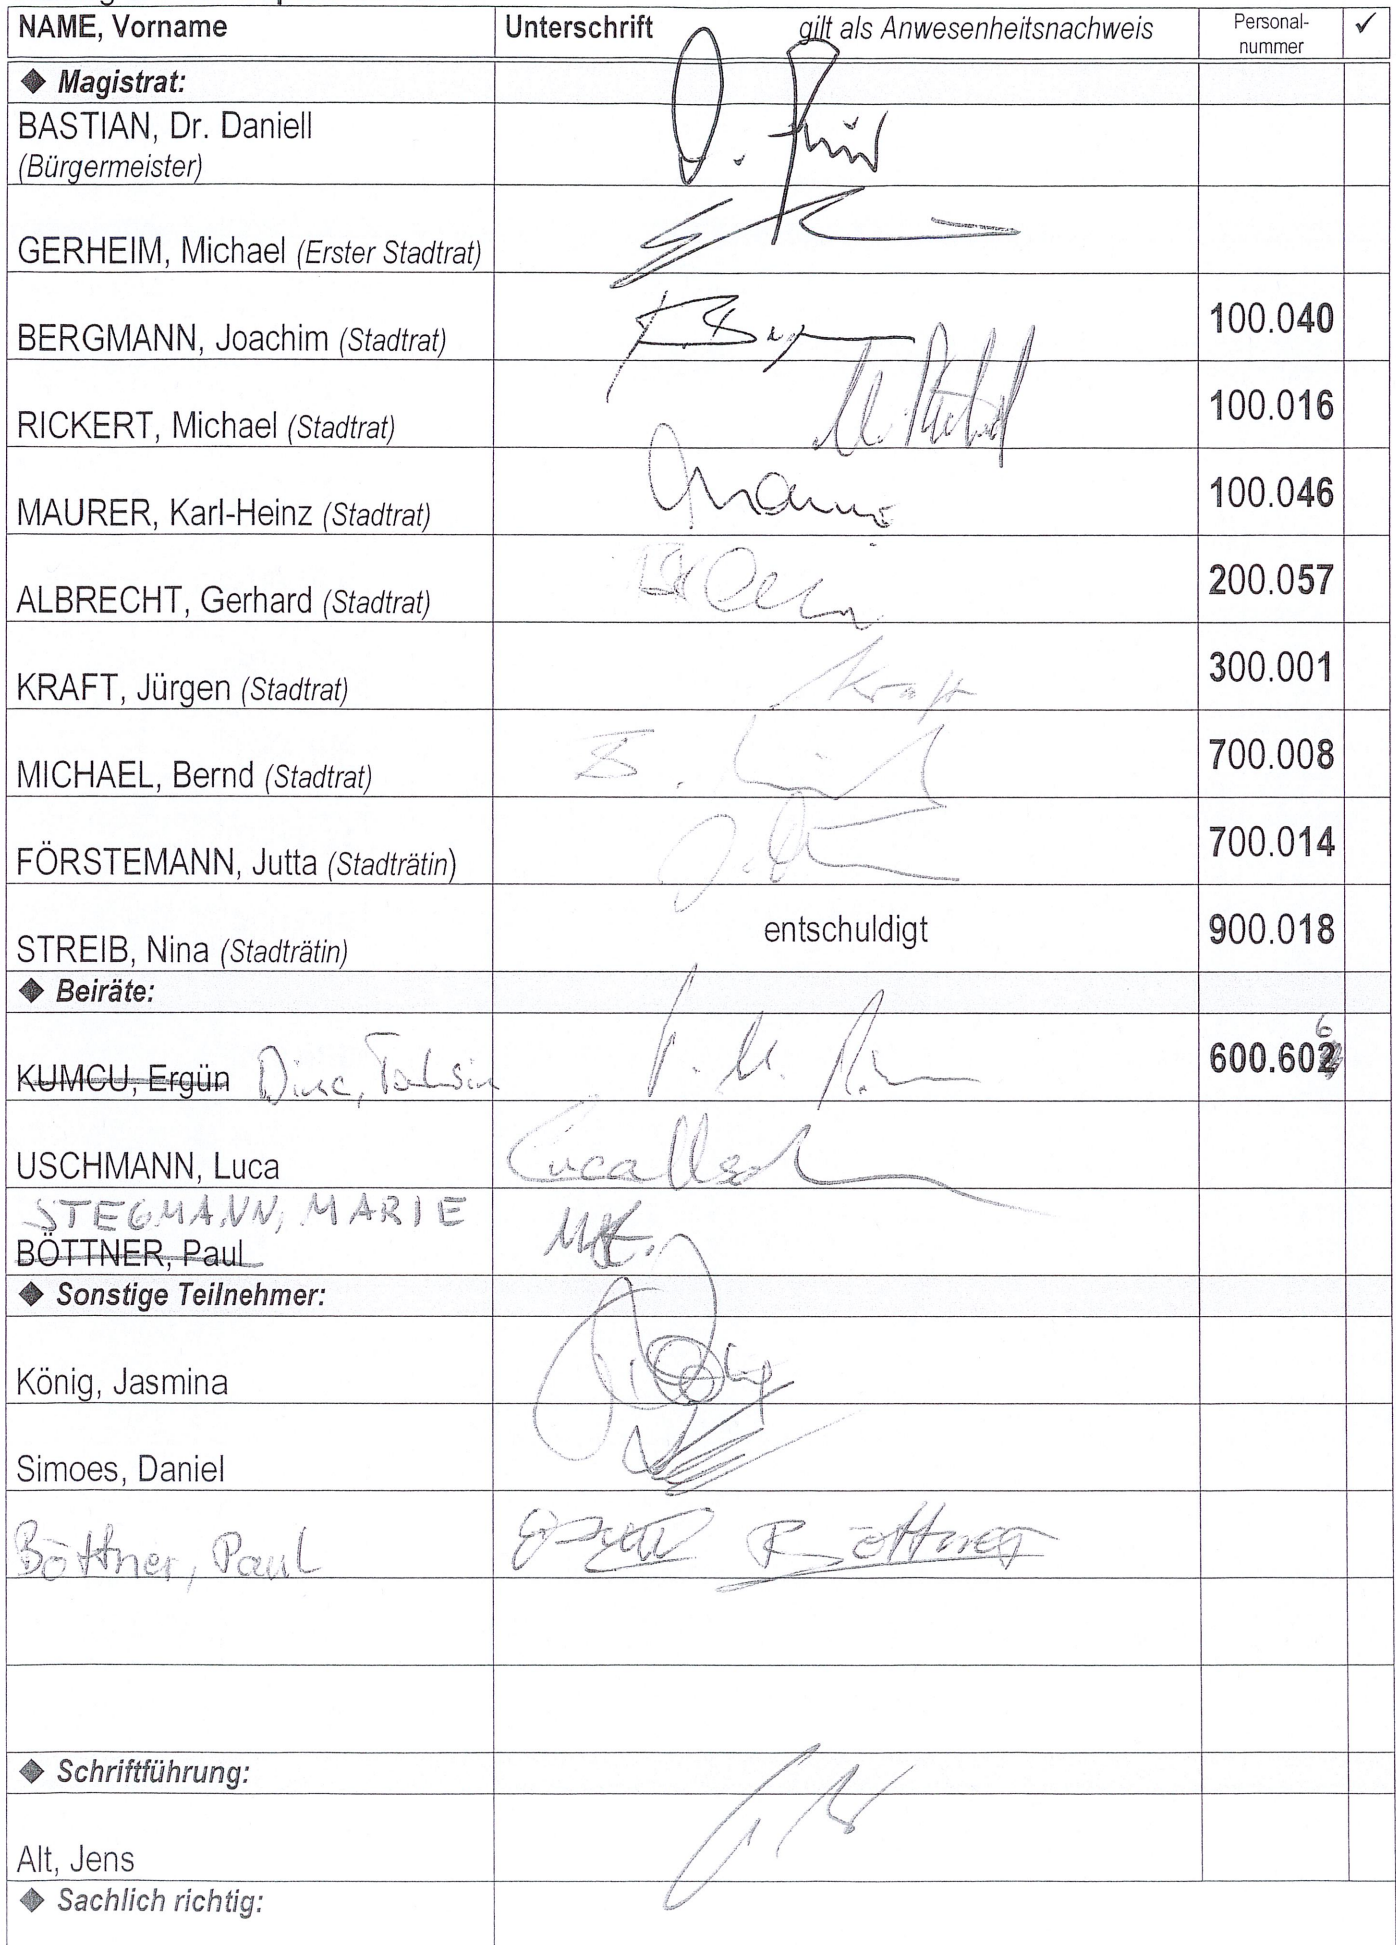 NAME, Vorname Unterschrift gilt als Anwesenheitsnachweis Personal-nummer ✓
◆ Magistrat:
BASTIAN, Dr. Daniell
(Bürgermeister)
GERHEIM, Michael (Erster Stadtrat)
BERGMANN, Joachim (Stadtrat) 100.040
RICKERT, Michael (Stadtrat) 100.016
MAURER, Karl-Heinz (Stadtrat) 100.046
ALBRECHT, Gerhard (Stadtrat) 200.057
KRAFT, Jürgen (Stadtrat) Kraft 300.001
MICHAEL, Bernd (Stadtrat) 700.008
FÖRSTEMANN, Jutta (Stadträtin) 700.014
STREIB, Nina (Stadträtin) entschuldigt 900.018
◆ Beiräte:
KUMCU, Ergün Dinc, Tahsin 600.606
USCHMANN, Luca Luca
STEGMANN, MARIE
BÖTTNER, Paul
◆ Sonstige Teilnehmer:
König, Jasmina
Simoes, Daniel
Böttner, Paul Böttner
◆ Schriftführung:
Alt, Jens
◆ Sachlich richtig: